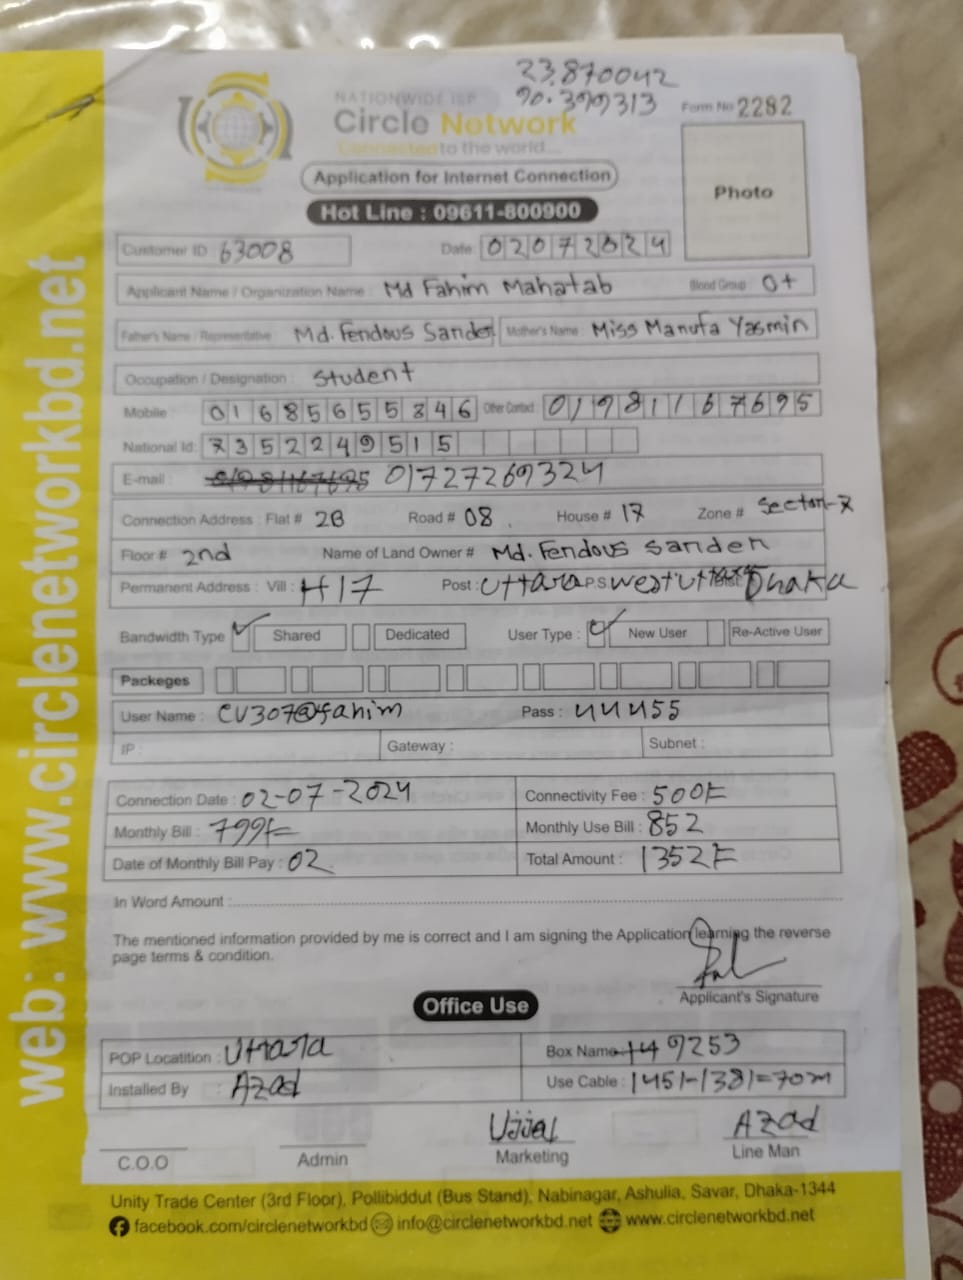 23.870042
90.399313
NATIONWIDE ISP
Form No 2282
Circle Network
Connected to the world...
Application for Internet Connection
Photo
Hot Line : 09611-800900
Customer ID 63008 Date : 02072024
Applicant Name / Organization Name : Md Fahim Mahatab Blood Group : O+
Father's Name / Representative : Md. Ferdous Sarder Mother's Name : Miss Manufa Yasmin
Occupation / Designation : Student
Mobile : 01685655346 Other Contact : 01981167695
National Id: 7352249515
E-mail : 01981167695 01727269324
Connection Address : Flat # 2B Road # 08 House # 17 Zone # Sector-7
Floor # 2nd Name of Land Owner # Md. Ferdous Sarder
Permanent Address : Vill : H17 Post : Uttara P.S West Uttara Dist: Dhaka
Bandwidth Type Shared Dedicated User Type : New User Re-Active User
Packeges
User Name : CV307@fahim Pass : 44455
IP : Gateway : Subnet :
Connection Date : 02-07-2024 Connectivity Fee : 500/=
Monthly Bill : 799/= Monthly Use Bill : 852
Date of Monthly Bill Pay : 02 Total Amount : 1352/=
In Word Amount :
The mentioned information provided by me is correct and I am signing the Application learning the reverse
page terms & condition.
Applicant's Signature
Office Use
POP Locatition : Uttara Box Name 149253
Installed By : Azad Use Cable : 1451-1381=70m
Ujjal Azad
C.O.O Admin Marketing Line Man
Unity Trade Center (3rd Floor), Pollibiddut (Bus Stand), Nabinagar, Ashulia, Savar, Dhaka-1344
facebook.com/circlenetworkbd info@circlenetworkbd.net www.circlenetworkbd.net
web: www.circlenetworkbd.net